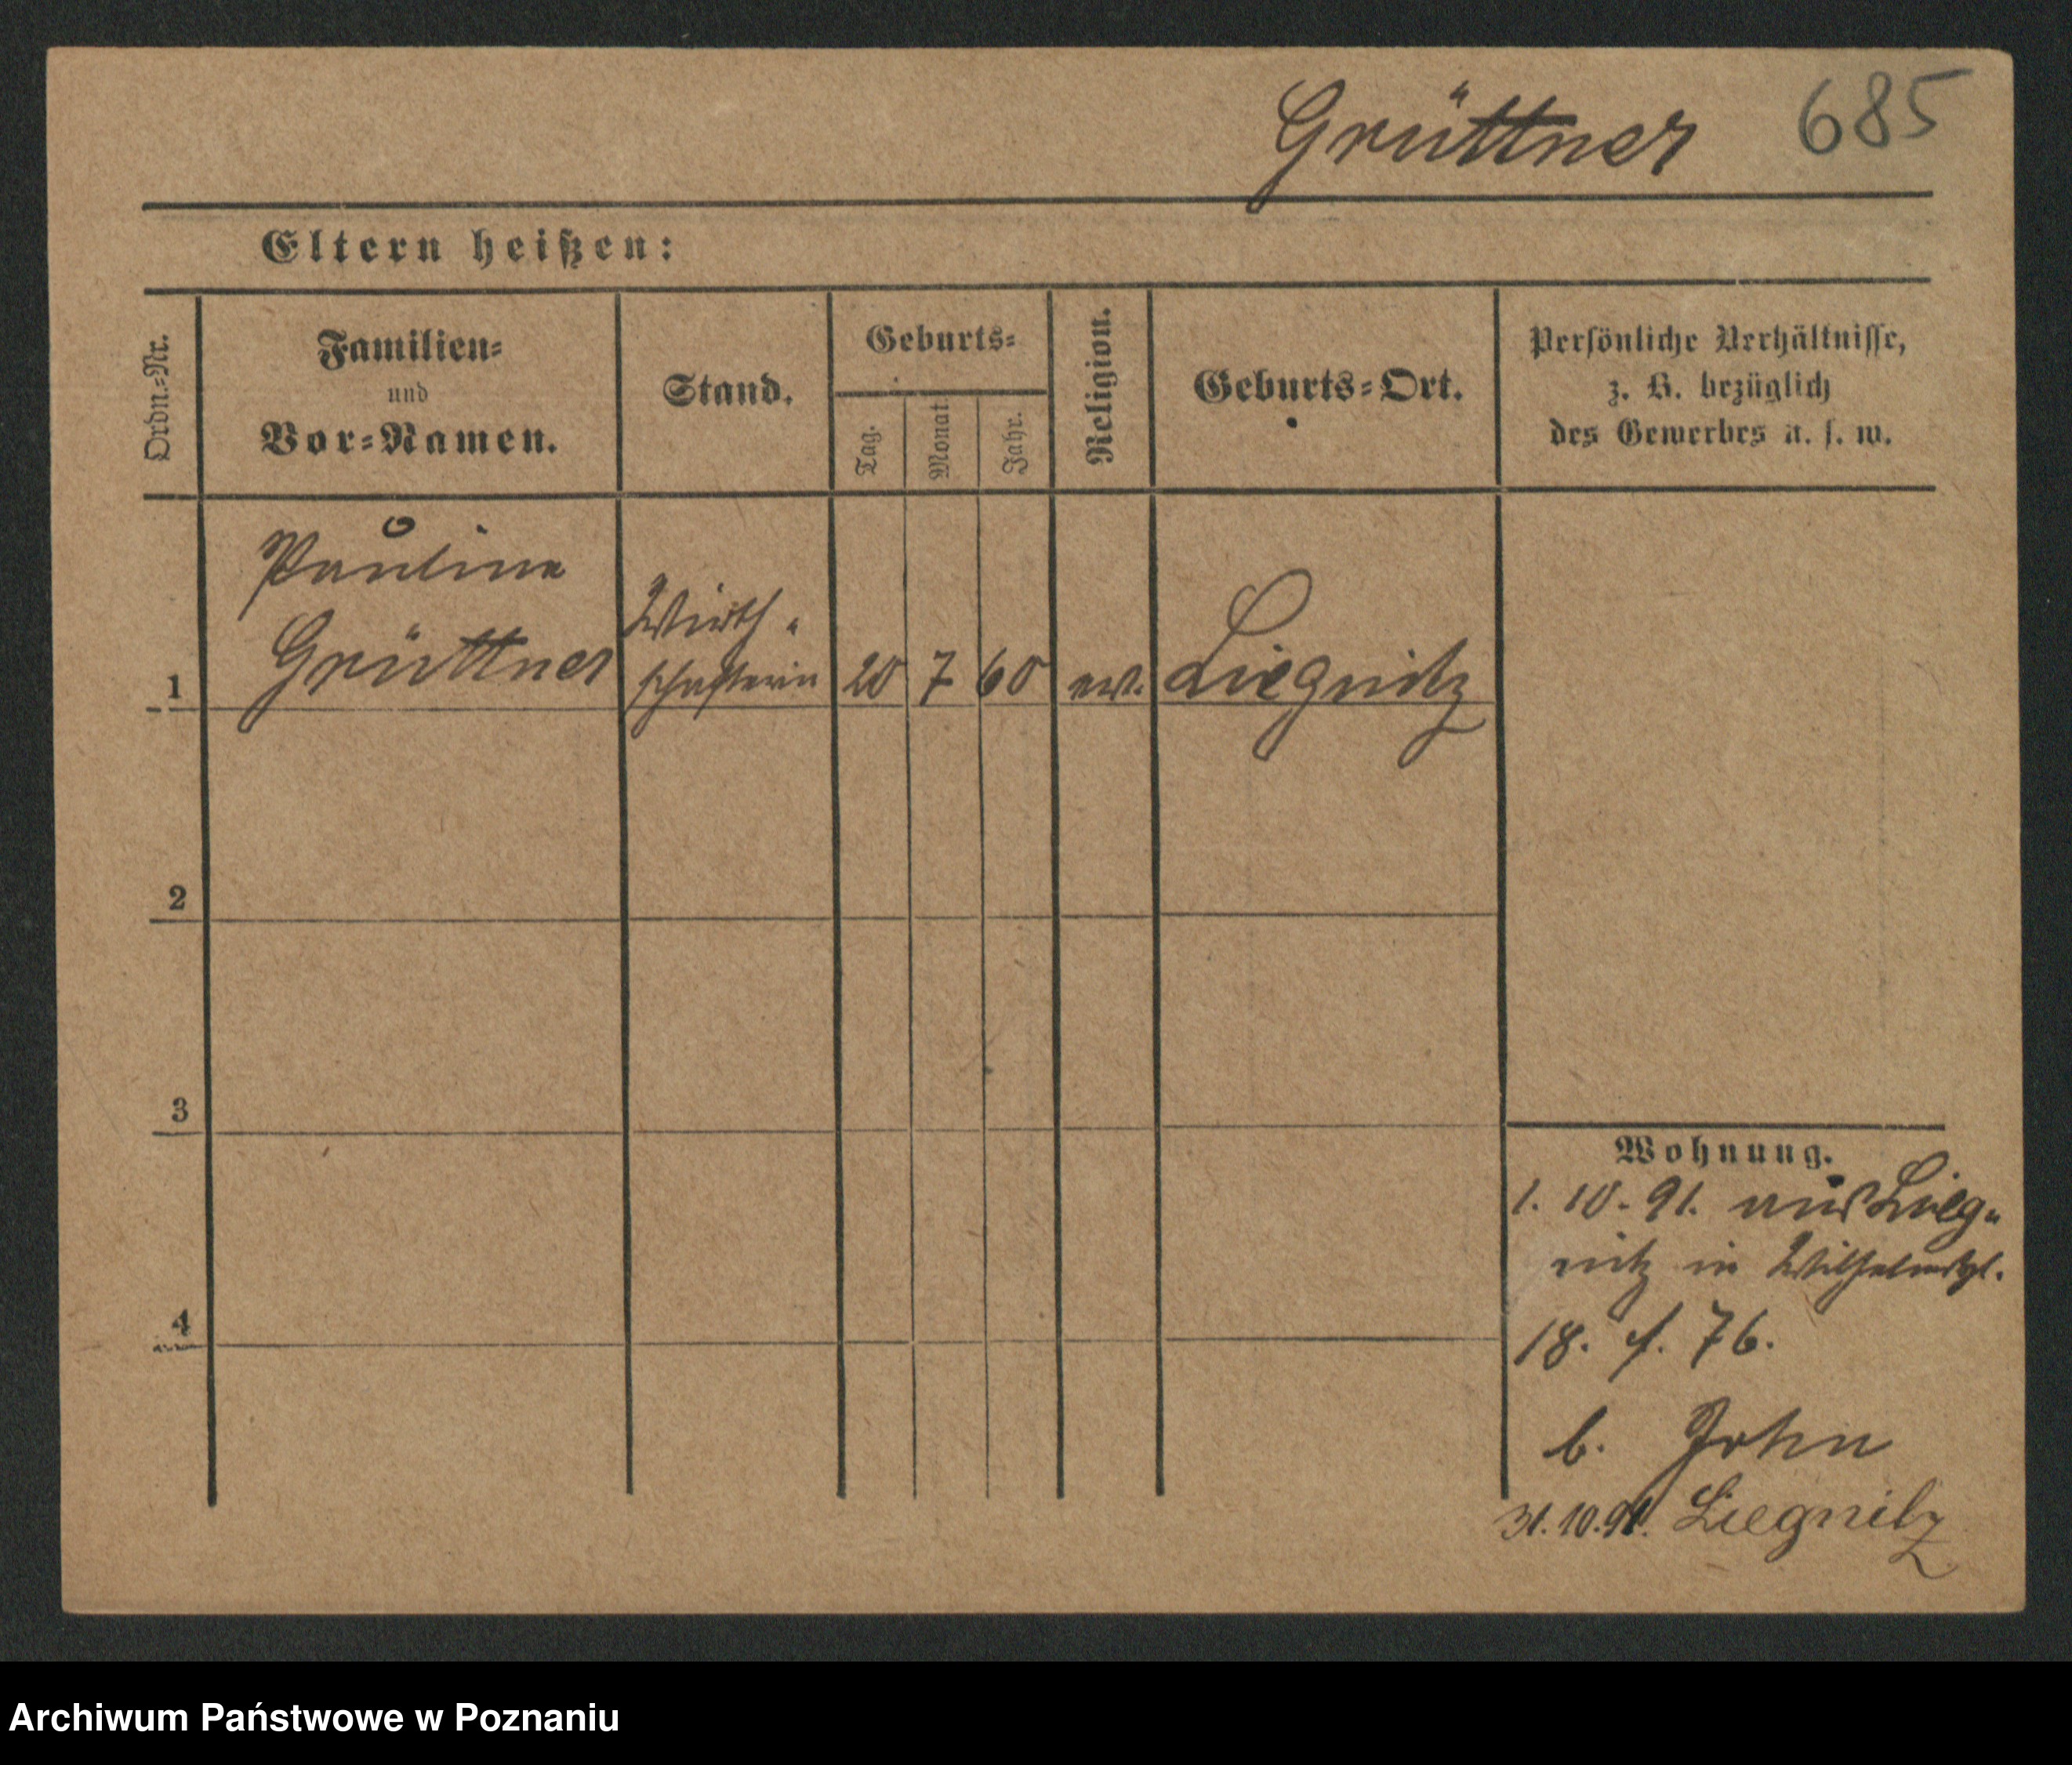 Grüttner 685
Eltern heißen:
Ordn.=Nr.
Familien=
und
Vor=Namen.
Stand.
Geburts=
Tag.
Monat
Jahr.
Religion.
Geburts=Ort.
Persönliche Verhältnisse,
z. B. bezüglich
des Gewerbes u. s. w.
Pauline
Grüttner
Wirth=
schafterin
1 20 7 60 ev. Liegnitz
2
3
4
Wohnung.
1. 10. 91. aus Lieg=
nitz in Wilhelmspl.
18. f. 76.
b. John
31.10.91. Liegnitz
Archiwum Państwowe w Poznaniu